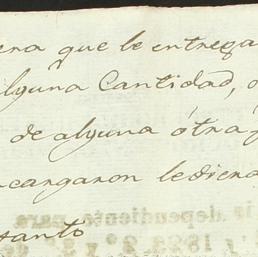 era que le entrega
alguña Cantidad, o
de alguna ótra
ncargaron lediera
tanto
is dependiente para